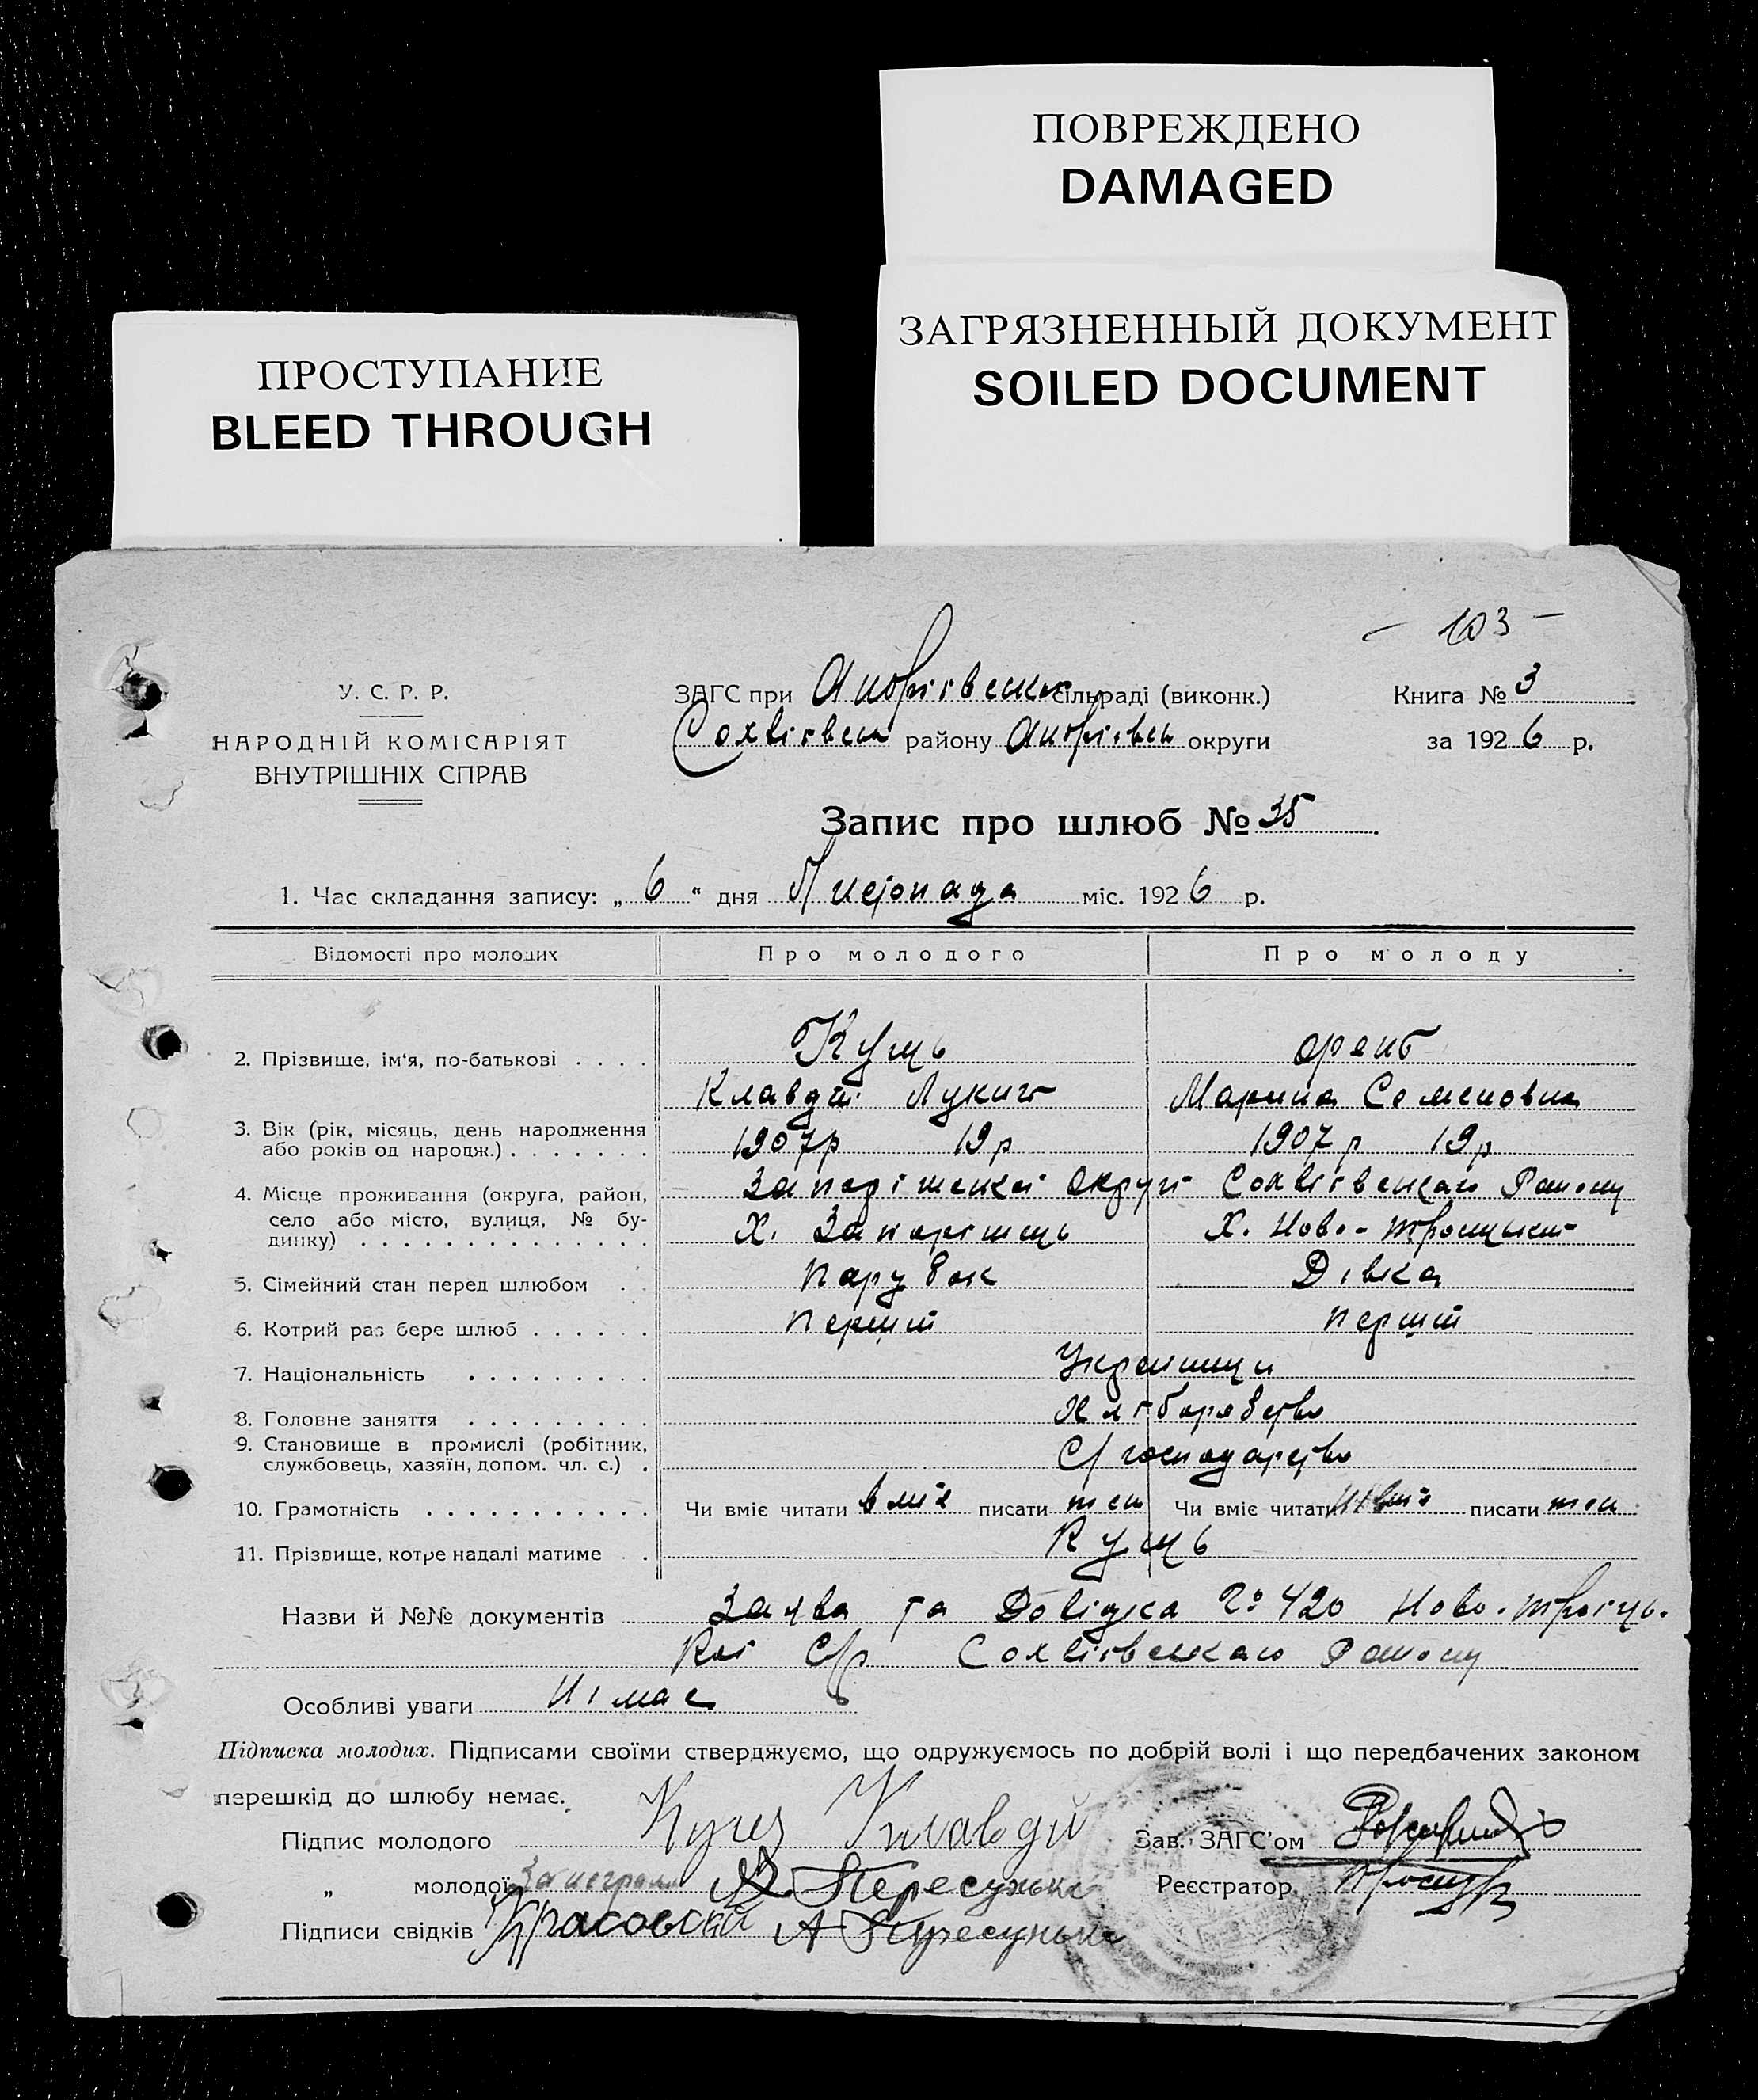 ПОВРЕЖДЕНО
DAMAGED
ЗАГРЯЗНЕННЫЙ ДОКУМЕНТ
SOILED DOCUMENT
ПРОСТУПАНИЕ
BLEED THROUGH
— 103 —
У. С. Р. Р.
НАРОДНІЙ КОМІСАРІЯТ
ВНУТРІШНІХ СПРАВ
ЗАГС при сільраді (виконк.)
району округи
Книга № 3
за 1926 р.
Запис про шлюб № 35
1. Час складання запису: „ 6 “ дня Листопада міс. 1926 р.
Відомості про молодих Про молодого Про молоду
2. Прізвище, ім'я, по-батькові . . . . Кущь
Клавдій Лукич Марина Семеновна
3. Вік (рік, місяць, день народження або років од народж.) . . . . . . . 1907р 19р 1907р 19р
4. Місце проживання (округа, район, село або місто, вулиця, № будинку) . . . . . . . . . . . . . . Запоріжської Округи Району
Х. Запоріжець Х. Ново-Троицький
5. Сімейний стан перед шлюбом . . Парубок Дівка
6. Котрий раз бере шлюб . . . . . . Перший Перший
7. Національність . . . . . . . . . Українци
8. Головне заняття . . . . . . . . . Хліборобство
9. Становище в промислі (робітник, службовець, хазяїн, допом. чл. с.) . С/господарство
10. Грамотність . . . . . . . . . . . Чи вміє читати вміє писати теж Чи вміє читати невміє писати теж
11. Прізвище, котре надалі матиме . . Кущь
Назви й №№ документів Заява та Довідка № 420 Ново-Троіць-
кої С/р Району
Особливі уваги Німає
Підписка молодих. Підписами своїми стверджуємо, що одружуємось по добрій волі і що передбачених законом
перешкід до шлюбу немає.
Підпис молодого Кущ Клавдій
Зав. ЗАГС'ом
„ молодої
Реєстратор
Підписи свідків Красовскій